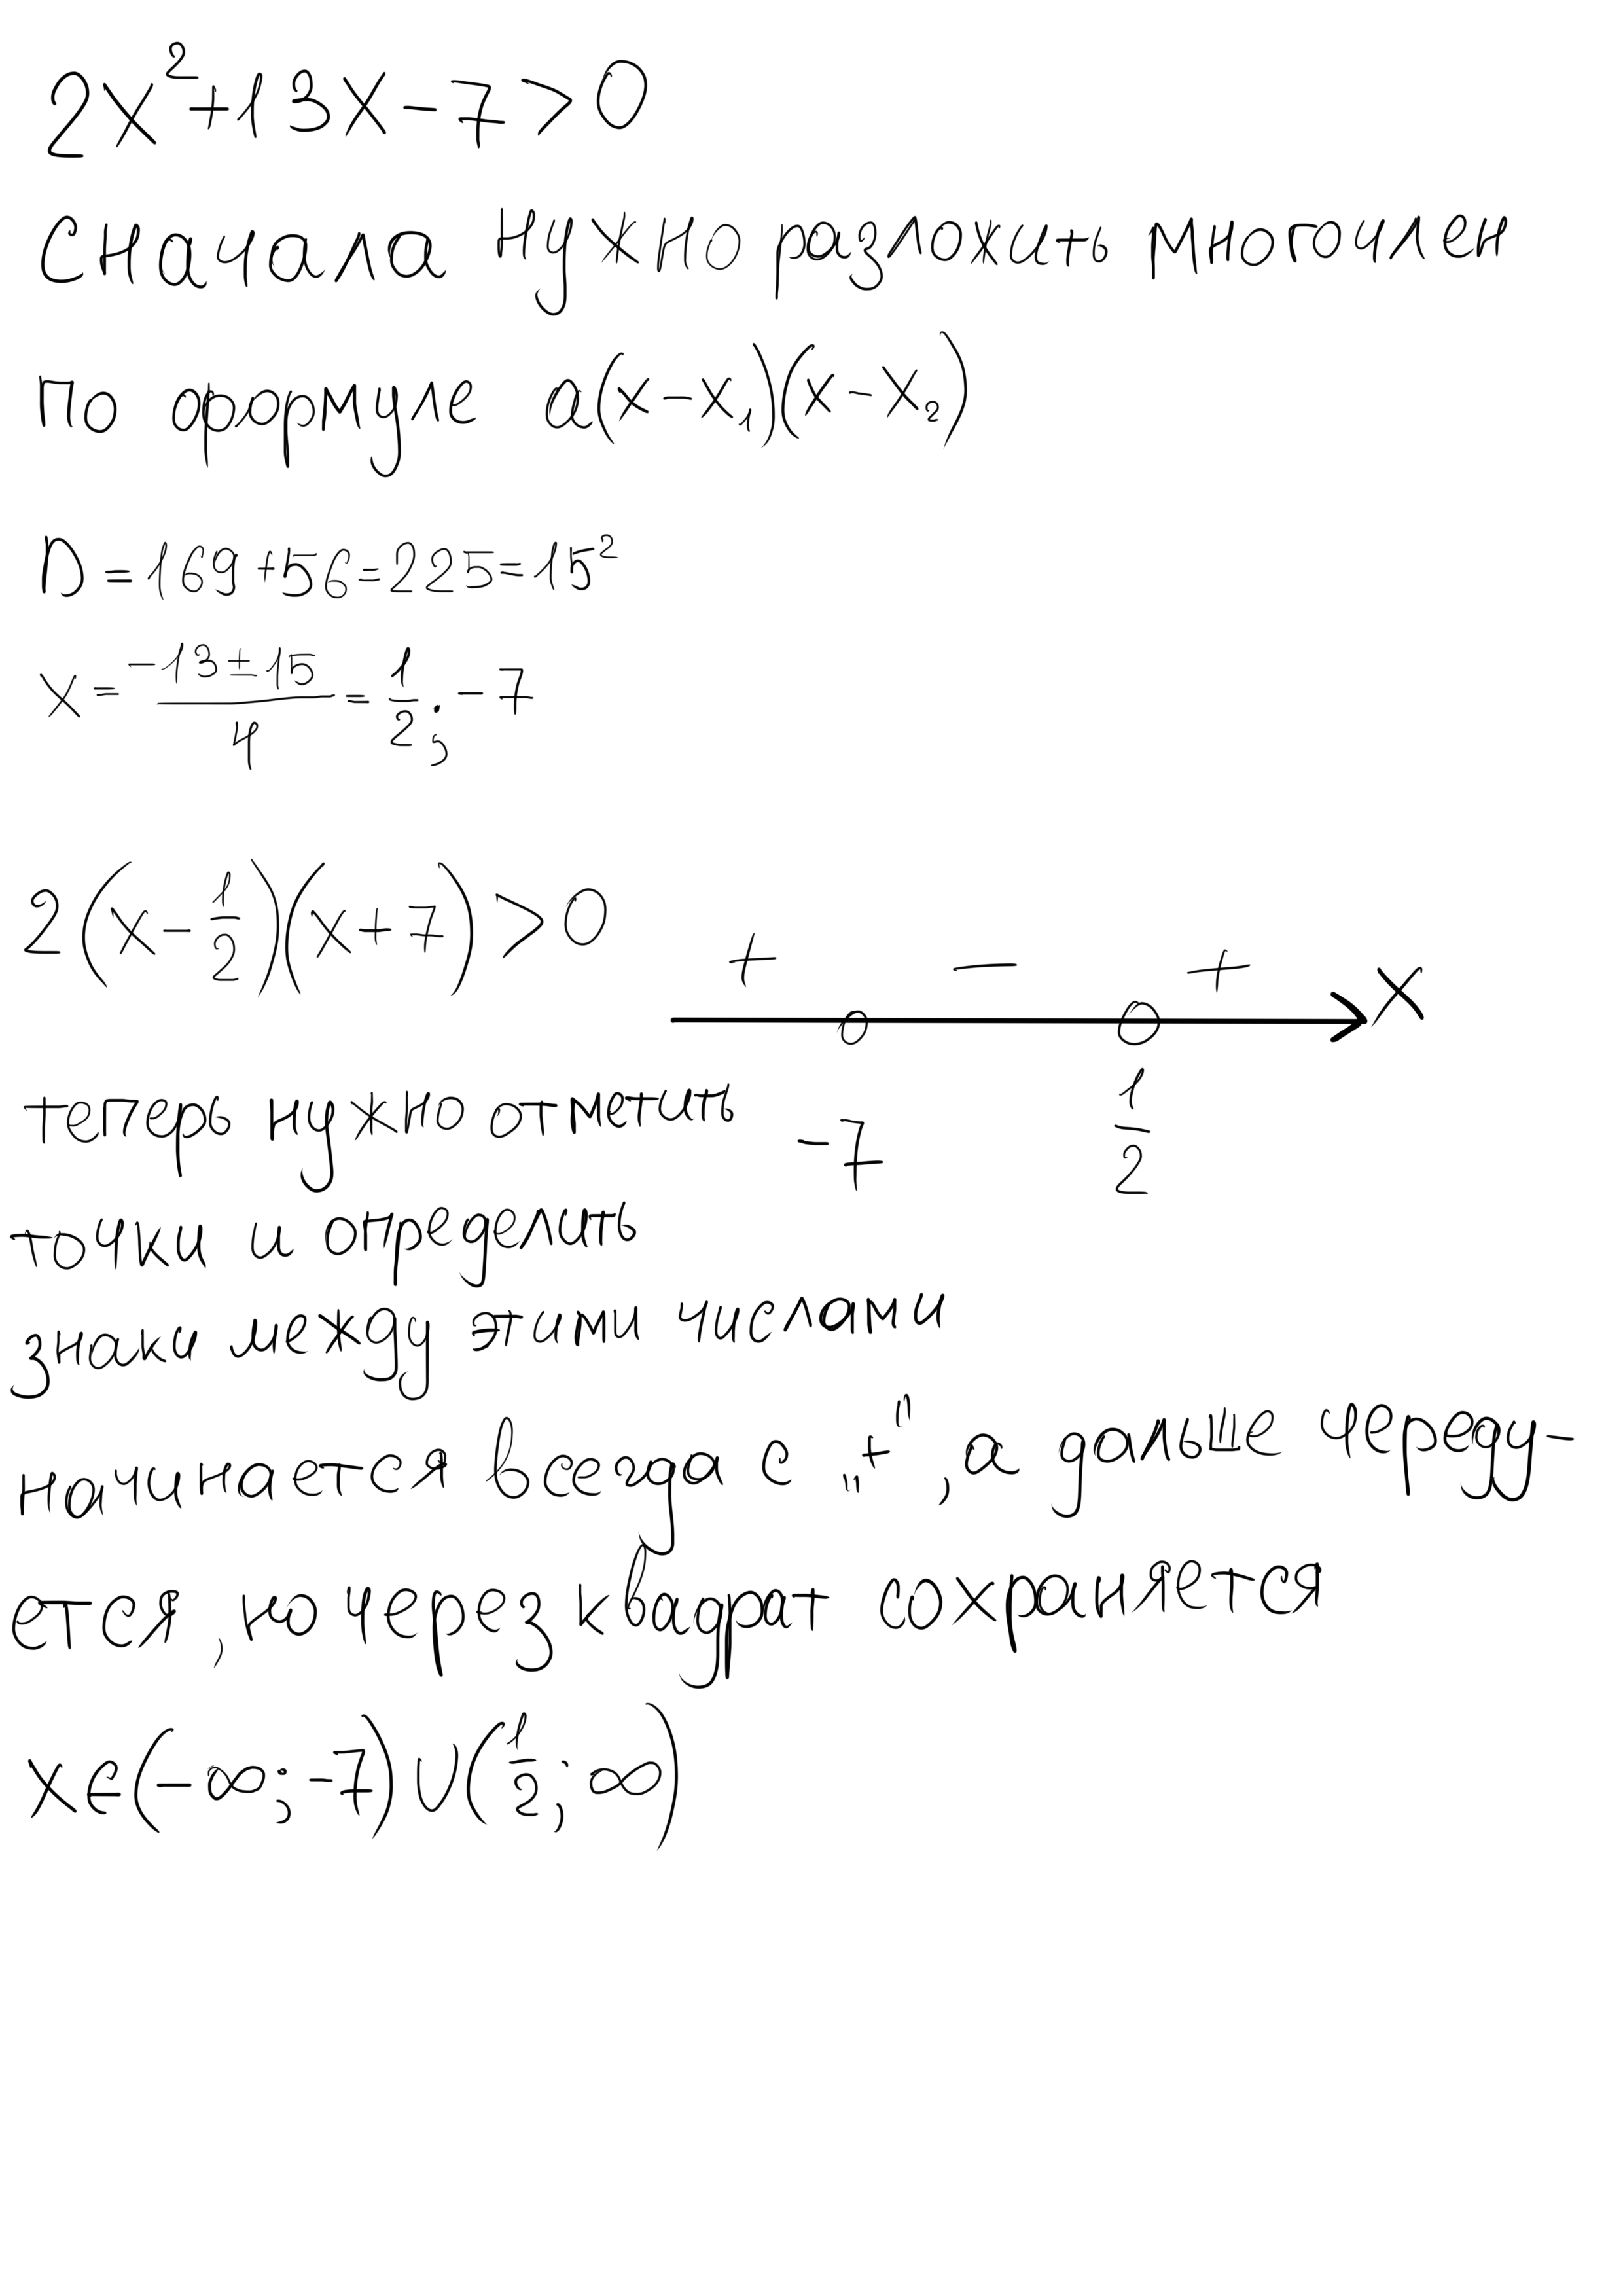 2x²+13x-7>0
сначала нужно разложить многочлен
по формуле a(x-x₁)(x-x₂)
D=169+56=225=15²
x=(-13±15)/4=1/2;-7
2(x-1/2)(x+7)>0
+ - + x
-7 1/2
теперь нужно отметить
точки и определить
знаки между этими числами
начинается всегда с „+", а дальше череду-
ется, но через квадрат сохраняется
x∈(-∞;-7)∪(1/2;∞)